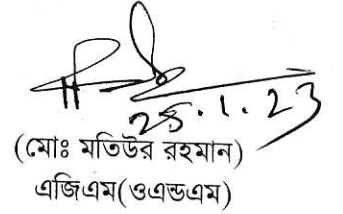 25.1.23
(মোঃ মতিউর রহমান)
এজিএম(ওএন্ডএম)